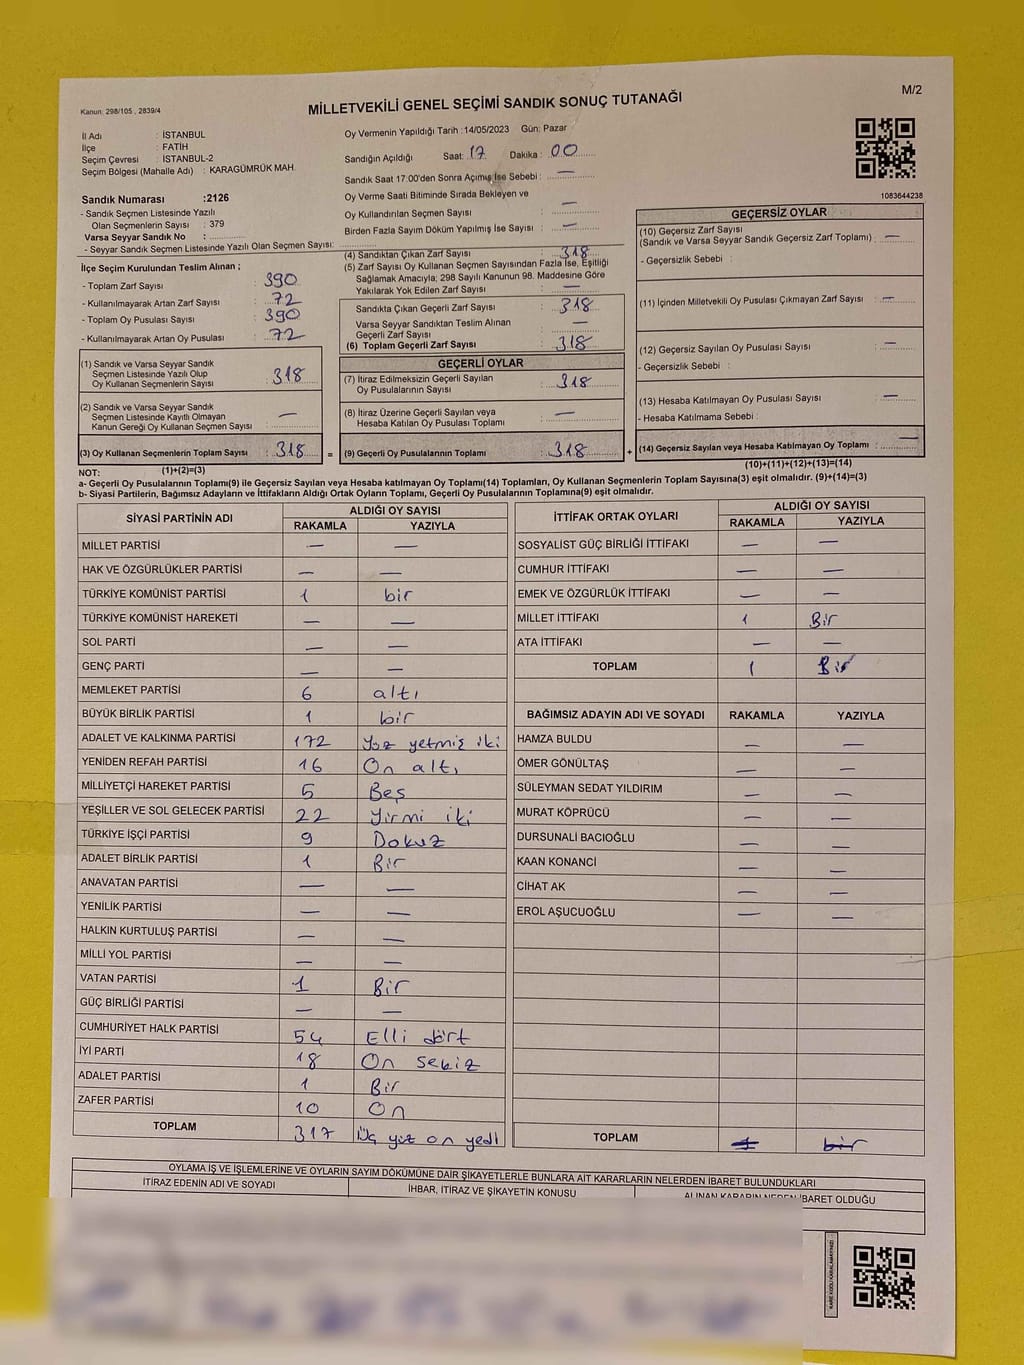 M/2
Kanun: 298/105 , 2839/4
MİLLETVEKİLİ GENEL SEÇİMİ SANDIK SONUÇ TUTANAĞI
İl Adı : İSTANBUL
İlçe : FATİH
Seçim Çevresi : İSTANBUL-2
Seçim Bölgesi (Mahalle Adı) : KARAGÜMRÜK MAH.
Oy Vermenin Yapıldığı Tarih :14/05/2023 Gün: Pazar
Sandığın Açıldığı Saat: 17 Dakika : 00
Sandık Saat 17:00'den Sonra Açımış İse Sebebi : —
Oy Verme Saati Bitiminde Sırada Bekleyen ve
Oy Kullandırılan Seçmen Sayısı : —
Birden Fazla Sayım Döküm Yapılmış İse Sayısı : —
1083644238
Sandık Numarası :2126
- Sandık Seçmen Listesinde Yazılı
Olan Seçmenlerin Sayısı : 379
Varsa Seyyar Sandık No :
- Seyyar Sandık Seçmen Listesinde Yazılı Olan Seçmen Sayısı:
İlçe Seçim Kurulundan Teslim Alınan ;
- Toplam Zarf Sayısı : 390
- Kullanılmayarak Artan Zarf Sayısı : 72
- Toplam Oy Pusulası Sayısı : 390
- Kullanılmayarak Artan Oy Pusulası : 72
(1) Sandık ve Varsa Seyyar Sandık
Seçmen Listesinde Yazılı Olup
Oy Kullanan Seçmenlerin Sayısı : 318
(2) Sandık ve Varsa Seyyar Sandık
Seçmen Listesinde Kayıtlı Olmayan
Kanun Gereği Oy Kullanan Seçmen Sayısı : —
(3) Oy Kullanan Seçmenlerin Toplam Sayısı : 318
(1)+(2)=(3)
(4) Sandıktan Çıkan Zarf Sayısı : 318
(5) Zarf Sayısı Oy Kullanan Seçmen Sayısından Fazla İse, Eşitliği
Sağlamak Amacıyla; 298 Sayılı Kanunun 98. Maddesine Göre
Yakılarak Yok Edilen Zarf Sayısı : —
Sandıkta Çıkan Geçerli Zarf Sayısı : 318
Varsa Seyyar Sandıktan Teslim Alınan
Geçerli Zarf Sayısı : —
(6) Toplam Geçerli Zarf Sayısı : 318
GEÇERLİ OYLAR
(7) İtiraz Edilmeksizin Geçerli Sayılan
Oy Pusulalarının Sayısı : 318
(8) İtiraz Üzerine Geçerli Sayılan veya
Hesaba Katılan Oy Pusulası Toplamı : —
= (9) Geçerli Oy Pusulalarının Toplamı : 318 +
GEÇERSİZ OYLAR
(10) Geçersiz Zarf Sayısı
(Sandık ve Varsa Seyyar Sandık Geçersiz Zarf Toplamı) : —
- Geçersizlik Sebebi :
(11) İçinden Milletvekili Oy Pusulası Çıkmayan Zarf Sayısı : —
(12) Geçersiz Sayılan Oy Pusulası Sayısı : —
- Geçersizlik Sebebi :
(13) Hesaba Katılmayan Oy Pusulası Sayısı : —
- Hesaba Katılmama Sebebi :
(14) Geçersiz Sayılan veya Hesaba Katılmayan Oy Toplamı : —
(10)+(11)+(12)+(13)=(14)
NOT:
a- Geçerli Oy Pusulalarının Toplamı(9) ile Geçersiz Sayılan veya Hesaba katılmayan Oy Toplamı(14) Toplamları, Oy Kullanan Seçmenlerin Toplam Sayısına(3) eşit olmalıdır. (9)+(14)=(3)
b- Siyasi Partilerin, Bağımsız Adayların ve İttifakların Aldığı Ortak Oyların Toplamı, Geçerli Oy Pusulalarının Toplamına(9) eşit olmalıdır.
SİYASİ PARTİNİN ADI ALDIĞI OY SAYISI
RAKAMLA YAZIYLA
MİLLET PARTİSİ — —
HAK VE ÖZGÜRLÜKLER PARTİSİ — —
TÜRKİYE KOMÜNİST PARTİSİ 1 bir
TÜRKİYE KOMÜNİST HAREKETİ — —
SOL PARTİ — —
GENÇ PARTİ — —
MEMLEKET PARTİSİ 6 altı
BÜYÜK BİRLİK PARTİSİ 1 bir
ADALET VE KALKINMA PARTİSİ 172 Yüz yetmiş iki
YENİDEN REFAH PARTİSİ 16 On altı
MİLLİYETÇİ HAREKET PARTİSİ 5 Beş
YEŞİLLER VE SOL GELECEK PARTİSİ 22 Yirmi iki
TÜRKİYE İŞÇİ PARTİSİ 9 Dokuz
ADALET BİRLİK PARTİSİ 1 Bir
ANAVATAN PARTİSİ — —
YENİLİK PARTİSİ — —
HALKIN KURTULUŞ PARTİSİ — —
MİLLİ YOL PARTİSİ — —
VATAN PARTİSİ 1 Bir
GÜÇ BİRLİĞİ PARTİSİ — —
CUMHURİYET HALK PARTİSİ 54 Elli dört
İYİ PARTİ 18 On sekiz
ADALET PARTİSİ 1 Bir
ZAFER PARTİSİ 10 On
TOPLAM 317 Üç yüz on yedi
İTTİFAK ORTAK OYLARI ALDIĞI OY SAYISI
RAKAMLA YAZIYLA
SOSYALİST GÜÇ BİRLİĞİ İTTİFAKI — —
CUMHUR İTTİFAKI — —
EMEK VE ÖZGÜRLÜK İTTİFAKI — —
MİLLET İTTİFAKI 1 Bir
ATA İTTİFAKI — —
TOPLAM 1 Bir
BAĞIMSIZ ADAYIN ADI VE SOYADI RAKAMLA YAZIYLA
HAMZA BULDU — —
ÖMER GÖNÜLTAŞ — —
SÜLEYMAN SEDAT YILDIRIM — —
MURAT KÖPRÜCÜ — —
DURSUNALİ BACIOĞLU — —
KAAN KONANCİ — —
CİHAT AK — —
EROL AŞUCUOĞLU — —
TOPLAM 1 bir
OYLAMA İŞ VE İŞLEMLERİNE VE OYLARIN SAYIM DÖKÜMÜNE DAİR ŞİKAYETLERLE BUNLARA AİT KARARLARIN NELERDEN İBARET BULUNDUKLARI
İTİRAZ EDENİN ADI VE SOYADI İHBAR, İTİRAZ VE ŞİKAYETİN KONUSU ALINAN KARARIN NEDEN İBARET OLDUĞU